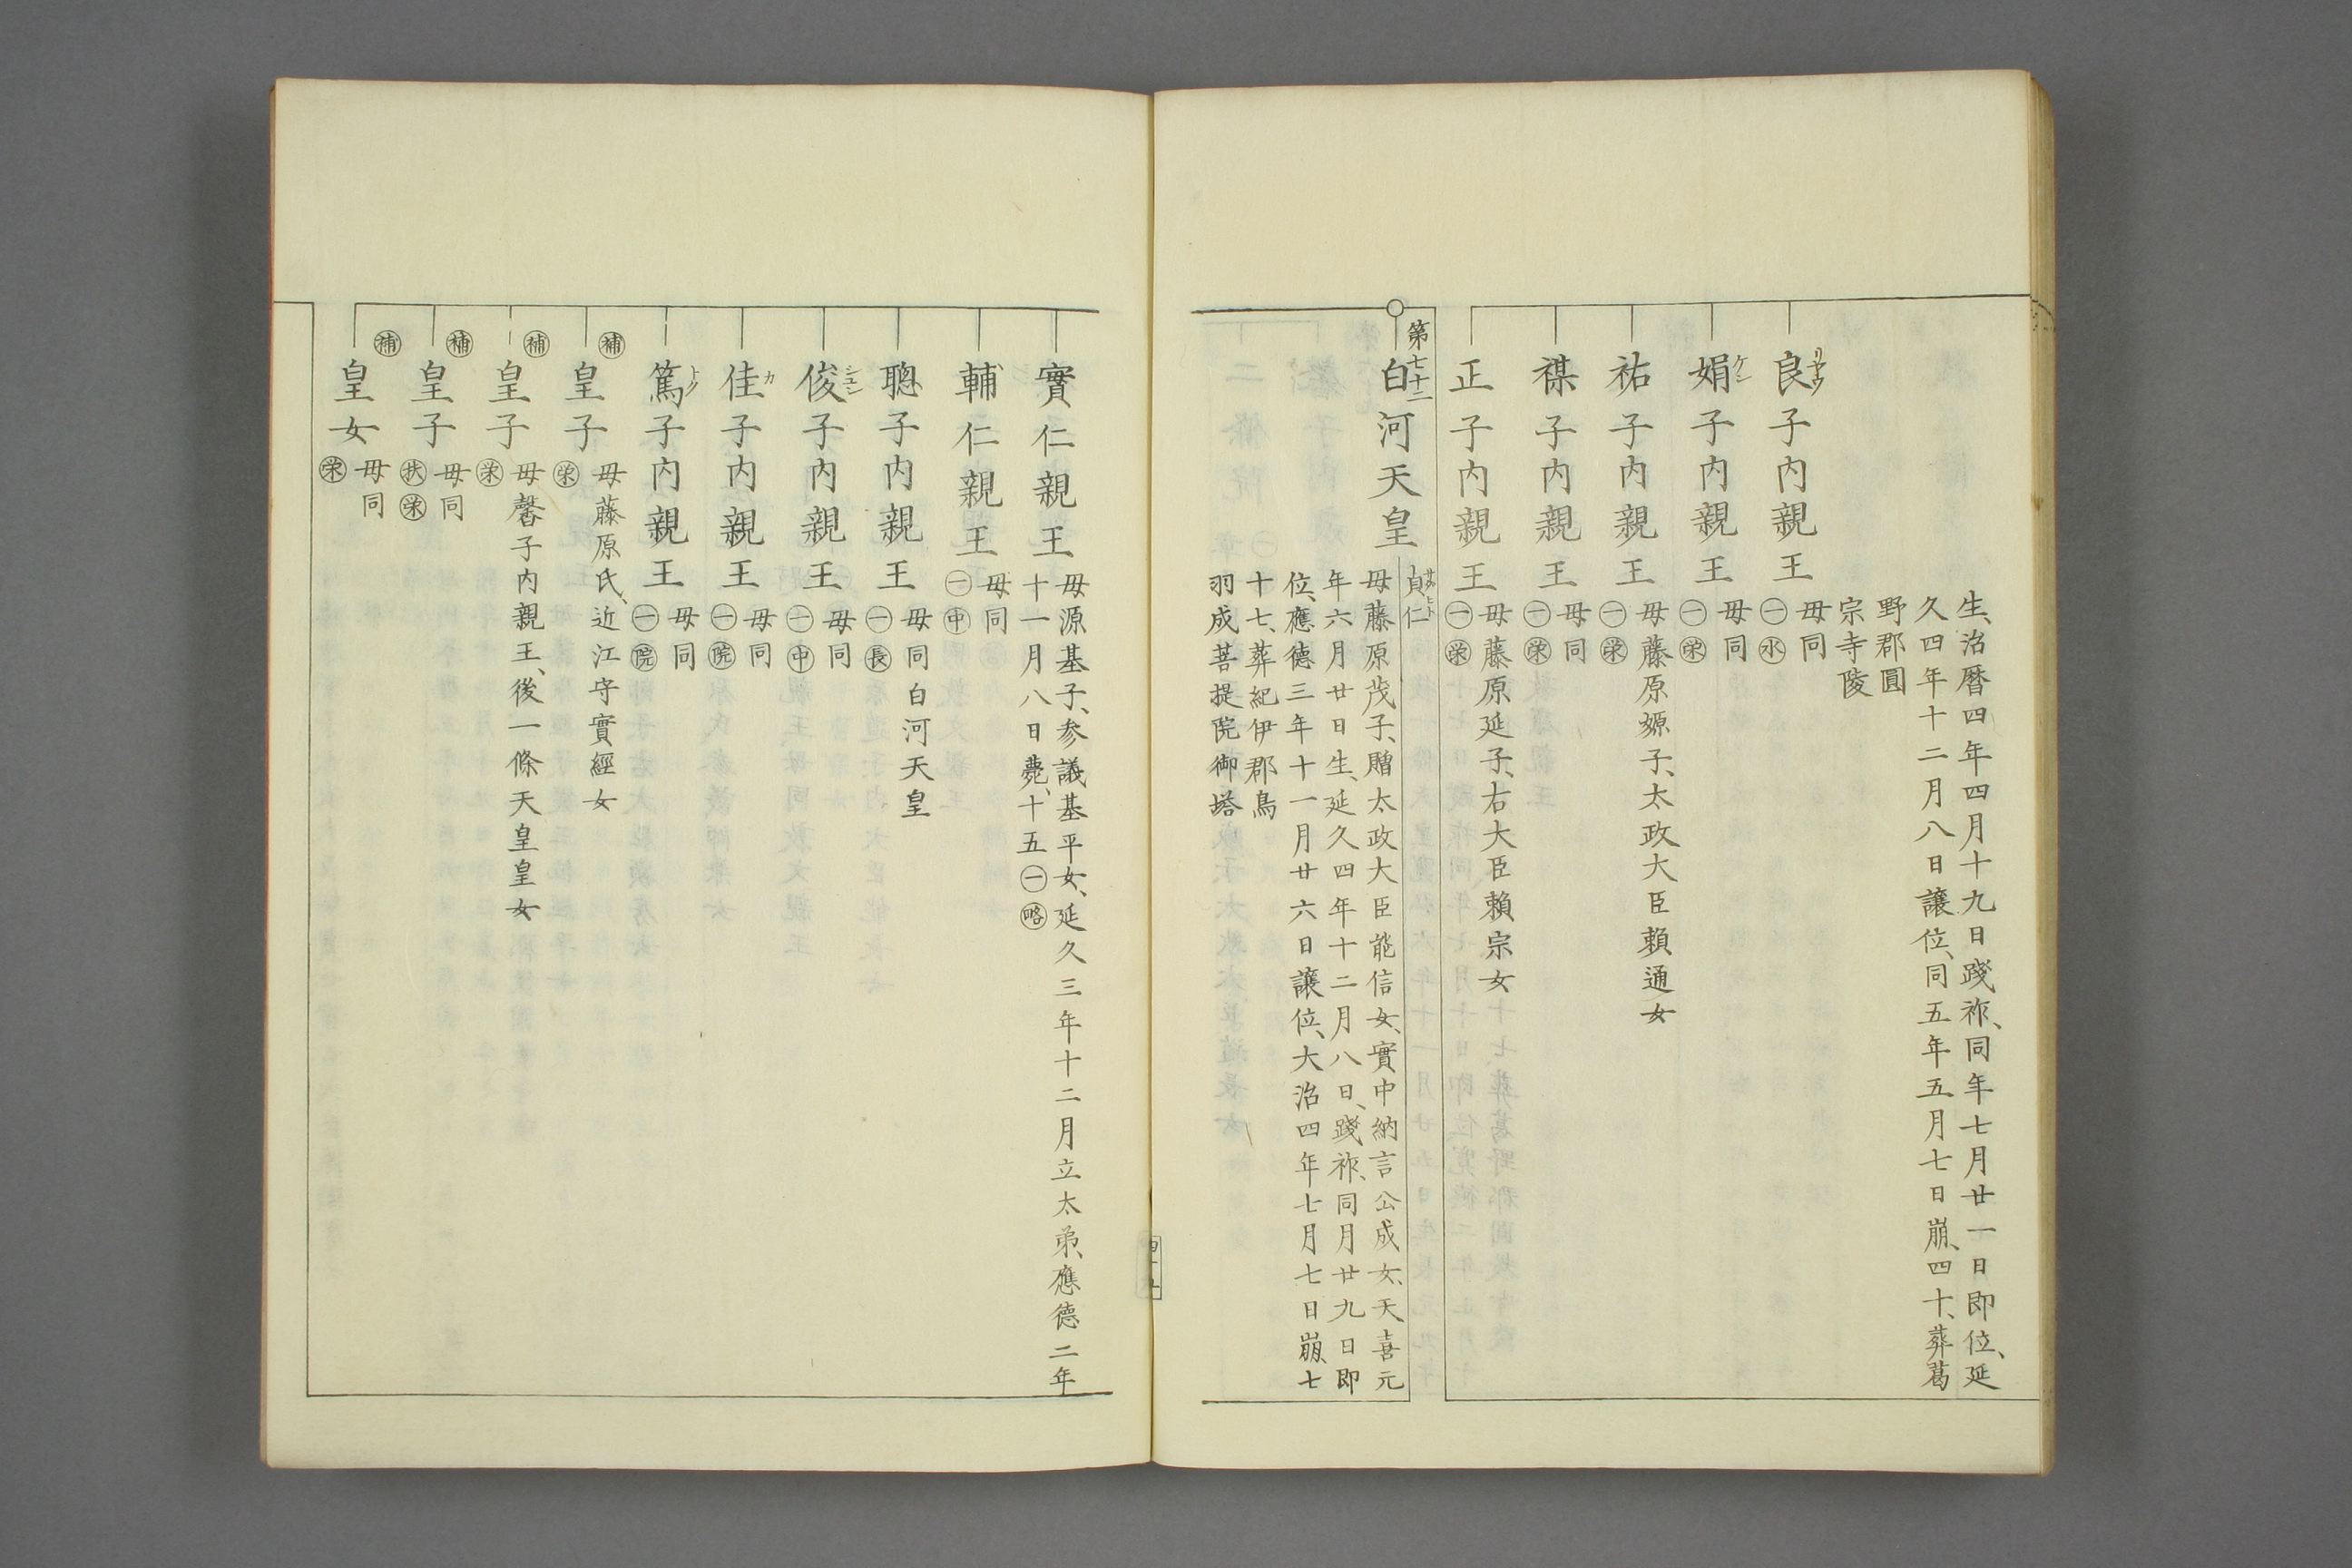 生、治曆四年四月十九日踐祚、同年七月廿一日即位、延
久四年十二月八日讓位、同五年五月七日崩、四十、葬葛
野郡圓
宗寺陵
良子内親王 母同
㊀㊌
娟子内親王 母同
㊀榮
ケン
祐子内親王 母藤原嫄子、太政大臣賴通女
㊀榮
禖子内親王 母同
㊀榮
正子内親王 母藤原延子、右大臣賴宗女
㊀榮
第七十二
白河天皇
貞仁
サダヒト
母藤原茂子、贈太政大臣能信女、實中納言公成女、天喜元
年六月廿日生、延久四年十二月八日、踐祚、同月廿九日即
位、應德三年十一月廿六日讓位、大治四年七月七日崩、七
十七、葬紀伊郡鳥
羽成菩提院御塔
實仁親王 母源基子、参議基平女、延久三年十二月立太弟、應德二年
十一月八日薨、十五㊀略
輔仁親王 母同
㊀㊥
聰子内親王 母同白河天皇
㊀長
俊子内親王 母同
㊀㊥
シユン
佳子内親王 母同
㊀院
カ
篤子内親王 母同
㊀院
トク
補
皇子 母藤原氏、近江守實經女
榮
補
皇子 母馨子内親王、後一條天皇皇女
榮
補
皇子 母同
扶榮
補
皇女 母同
榮